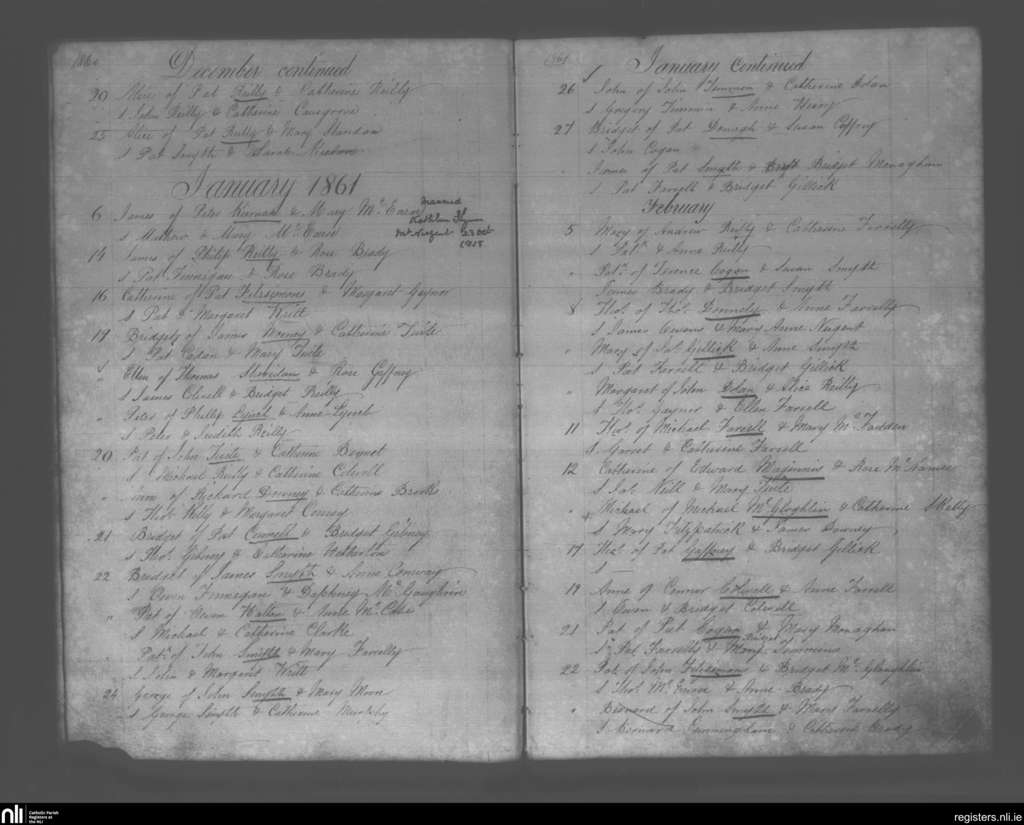 1860
December continued
20 Alice of Pat Reilly & Catherine Reilly
S John Reilly & Catherine Cusgrove
25 Alice of Pat Reilly & Mary Sheridan
S Pat Smyth & Sarah
January 1861
6 James of Peter Kiernan & Mary McEarin
S Mathew & Mary McEarin
married
Kathleen Flynn
Mt Nugent 23 Oct
1918
14 James of Philip Reilly & Rose Brady
S Pat Finnegan & Rose Brady
16 Catherine of Pat Fitzsimons & Margaret Gaynor
S Pat & Margaret Writt
19 Bridget of James & Catherine Tuite
S Pat Cogan & Mary Tuite
" Ellen of Thomas Sheridan & Rose Gaffney
S James Clivell & Bridget Reilly
" Peter of Philip Lynch & Anne Lynch
S Peter & Judith Reilly
20 Pat of John Tuite & Catherine
S Michael Reilly & Catherine Colwell
" Anne of Richard Downey & Catherine Brooks
S Thos. Kelly & Margaret Conroy
21 Bridget of Pat Connell & Bridget Gibney
S Thos. Gibney & Catharine Hetherton
22 Bridget of James Smyth & Anne Conway
S Owen Finnegan & Daphney McGaughran
" Pat of Owen Halton & McCabe
S Michael & Catherine Clarke
" Pat. of John Smyth & Mary Farrelly
S John & Margaret Writt
24 George of John Smyth & Mary Moon
S George Smyth & Catherine Murphy
1861
January continued
26 John of John Timmon & Catherine Dolan
S Gregory Timmin & Anne Henry
27 Bridget of Pat Donagh & Susan Coffey
S John Cogan
" James of Pat Smyth & Bridget Monaghan
S Pat Farrell & Bridget Gillick
February
5 Mary of Andrew Reilly & Catherine Farrelly
S Patk & Anne Reilly
" Patk. of Terence Cogan & Susan Smyth
James Brady & Bridget Smyth
8 Thos. of Thos. Donnely & Anne Farrelly
S James Owens & Mary Anne Nugent
" Mary of Jas. Gillick & Anne Smyth
S Pat Farrell & Bridget Gillick
Margaret of John Dolan & Alice Reilly
S Thos. Gaynor & Ellen Farrell
11 Thos. of Michael Farrell & Mary McFadden
S Garret & Catherine Farrell
12 Catherine of Edward Maginnis & Rose McNamee
S Jas. Neill & Mary Tuite
" Michael of Michael McGloghlin & Catherine Skelly
S Mary Fitzpatrick & James Downey
17 Thos. of Pat Gaffney & Bridget Gillick
S —
19 Anne of Connor Colwell & Anne Farrell
S Owen & Bridget Colwell
21 Pat of Pat Cogan & Mary Monaghan
S Pat Farrelly & Bridget Simmins
22 Pat. of John Fitzsimons & Bridget McGlaughlin
S Thos. McEnroe & Anne Brady
" Bernard of John Smyth & Mary Farrelly
S Bernard Cunningham & Catherine Brady